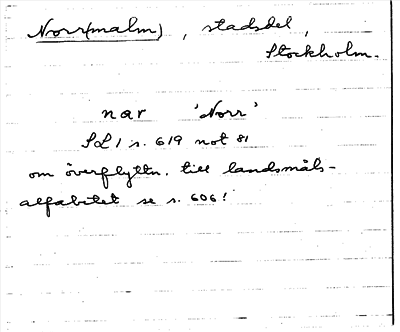 Norr(malm), stadsdel,
Stockholm.
nar 'Norr'
SL 1 s. 619 not 81
om överflyttn. till landsmåls-
alfabetet se s. 606!